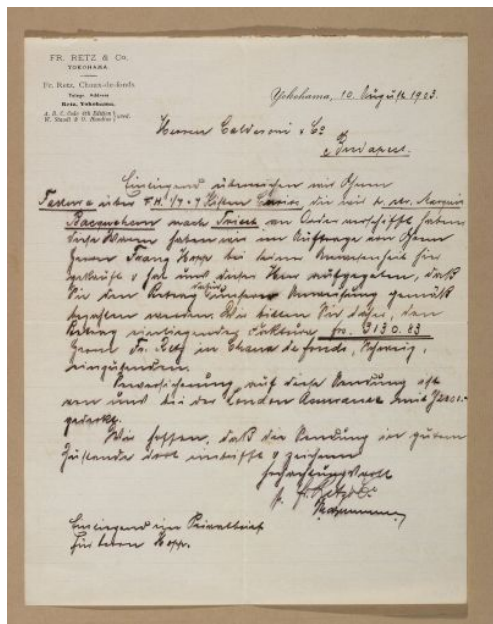 FR. RETZ & Co.
YOKOHAMA.
Fr. Retz, Chaux-de-fonds
Telegr. Address
Retz, Yokohama.
A. B. C. Code 4th Edition
W. Staudt & O. Hundius } used.
Yokohama, 10. August 1903.
Herren Calderoni & Co
Budapest.
Einliegend überreichen wir Ihnen
Factura über F.H. 1/7 = 7 Kisten Curios, die wir p. str. Marquis
Bacquehem nach Triest an Order verschifft haben
Diese Waren haben wir im Auftrage von Ihrem
Herrn Franz Hopp bei seiner Anwesenheit hier
gekauft & hat uns dieser Herr aufgegeben, daß
Sie den Betrag dafür unserer Anweisung gemäß
bezahlen werden. Wir bitten Sie daher, den
Betrag einliegender Faktura frs. 3130.83
Herrn Fr. Retz in Chaux de fonds, Schweiz,
einzusenden.
Seeversicherung auf diese Sendung ist
von uns bei der London Assurance mit
gedeckt.
Wir hoffen, daß die Sendung in gutem
Zustande dort eintrifft & zeichnen
hochachtungsvoll
p. Fr. Retz & Co
Einliegend ein Privatbrief
für Herrn Hopp.